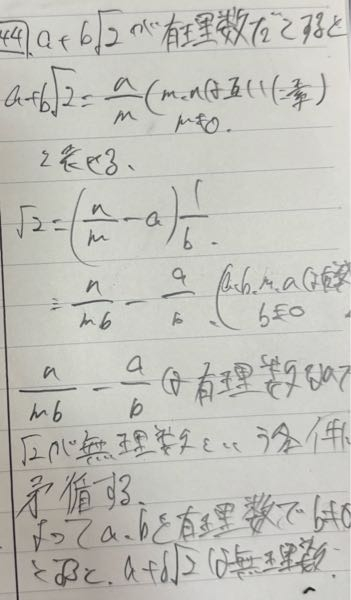 44. a+b√2 が有理数だとすると
a+b√2 = n/m (m,nは互いに素)
m≠0.
と表せる、
√2 = (n/m - a) 1/b.
= n/mb - a/b (a,b,m,nは有理数
b≠0
n/mb - a/b は有理数なので
√2が無理数という条件に
矛盾する、
よってa,bを有理数でb≠0
とすると、a+b√2は無理数